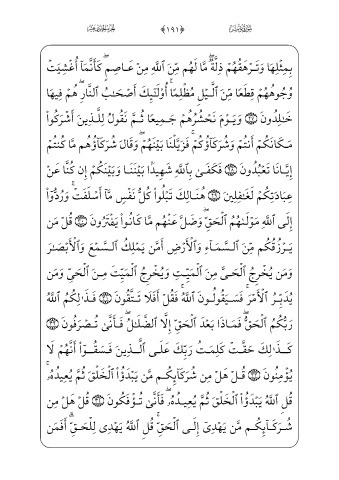 سورة يونس ﴿١٩١﴾ الجزء الحادي عشر
بِمِثْلِهَا وَتَرْهَقُهُمْ ذِلَّةٌ ۖ مَّا لَهُم مِّنَ ٱللَّهِ مِنْ عَاصِمٍ ۖ كَأَنَّمَآ أُغْشِيَتْ
وُجُوهُهُمْ قِطَعًا مِّنَ ٱلَّيْلِ مُظْلِمًا ۚ أُوْلَٰٓئِكَ أَصْحَٰبُ ٱلنَّارِ ۖ هُمْ فِيهَا
خَٰلِدُونَ ۝٢٧ وَيَوْمَ نَحْشُرُهُمْ جَمِيعًا ثُمَّ نَقُولُ لِلَّذِينَ أَشْرَكُوا۟
مَكَانَكُمْ أَنتُمْ وَشُرَكَآؤُكُمْ ۚ فَزَيَّلْنَا بَيْنَهُمْ ۖ وَقَالَ شُرَكَآؤُهُم مَّا كُنتُمْ
إِيَّانَا تَعْبُدُونَ ۝٢٨ فَكَفَىٰ بِٱللَّهِ شَهِيدًۢا بَيْنَنَا وَبَيْنَكُمْ إِن كُنَّا عَنْ
عِبَادَتِكُمْ لَغَٰفِلِينَ ۝٢٩ هُنَالِكَ تَبْلُوا۟ كُلُّ نَفْسٍ مَّآ أَسْلَفَتْ ۚ وَرُدُّوٓا۟
إِلَى ٱللَّهِ مَوْلَىٰهُمُ ٱلْحَقِّ ۖ وَضَلَّ عَنْهُم مَّا كَانُوا۟ يَفْتَرُونَ ۝٣٠ قُلْ مَن
يَرْزُقُكُم مِّنَ ٱلسَّمَآءِ وَٱلْأَرْضِ أَمَّن يَمْلِكُ ٱلسَّمْعَ وَٱلْأَبْصَٰرَ
وَمَن يُخْرِجُ ٱلْحَىَّ مِنَ ٱلْمَيِّتِ وَيُخْرِجُ ٱلْمَيِّتَ مِنَ ٱلْحَىِّ وَمَن
يُدَبِّرُ ٱلْأَمْرَ ۚ فَسَيَقُولُونَ ٱللَّهُ ۚ فَقُلْ أَفَلَا تَتَّقُونَ ۝٣١ فَذَٰلِكُمُ ٱللَّهُ
رَبُّكُمُ ٱلْحَقُّ ۖ فَمَاذَا بَعْدَ ٱلْحَقِّ إِلَّا ٱلضَّلَٰلُ ۖ فَأَنَّىٰ تُصْرَفُونَ ۝٣٢
كَذَٰلِكَ حَقَّتْ كَلِمَتُ رَبِّكَ عَلَى ٱلَّذِينَ فَسَقُوٓا۟ أَنَّهُمْ لَا
يُؤْمِنُونَ ۝٣٣ قُلْ هَلْ مِن شُرَكَآئِكُم مَّن يَبْدَؤُا۟ ٱلْخَلْقَ ثُمَّ يُعِيدُهُۥ ۚ
قُلِ ٱللَّهُ يَبْدَؤُا۟ ٱلْخَلْقَ ثُمَّ يُعِيدُهُۥ ۖ فَأَنَّىٰ تُؤْفَكُونَ ۝٣٤ قُلْ هَلْ مِن
شُرَكَآئِكُم مَّن يَهْدِىٓ إِلَى ٱلْحَقِّ ۚ قُلِ ٱللَّهُ يَهْدِى لِلْحَقِّ ۗ أَفَمَن